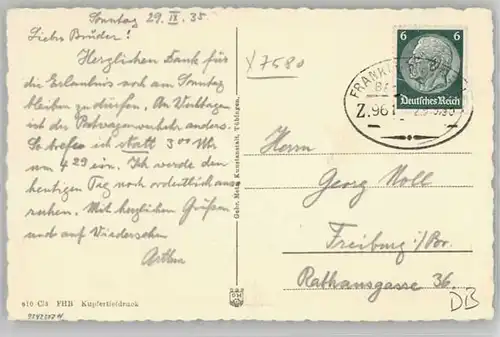 Sonntag 29. IX. 35
Liebe Brüder!
Herzlichen Dank für
die Erlaubnis noch am Sonntag
bleiben zu dürfen. An Werktagen
ist der verkehr anders.
So treffen ich statt 3 00 Uhr
um 4 29 ein. Ich werde den
heutigen Tag noch ordentlich aus-
ruhen. Mit herzlichen Grüßen
und auf Wiedersehen
Arthur
x7580
6 6
Deutsches Reich
FRANKF
Z.961
Herrn
Georg Noll
Freiburg i/Br.
Rathausgasse 36.
DB
Gebr. Metz, Kunstanstalt, Tübingen.
FHB Kupfertiefdruck